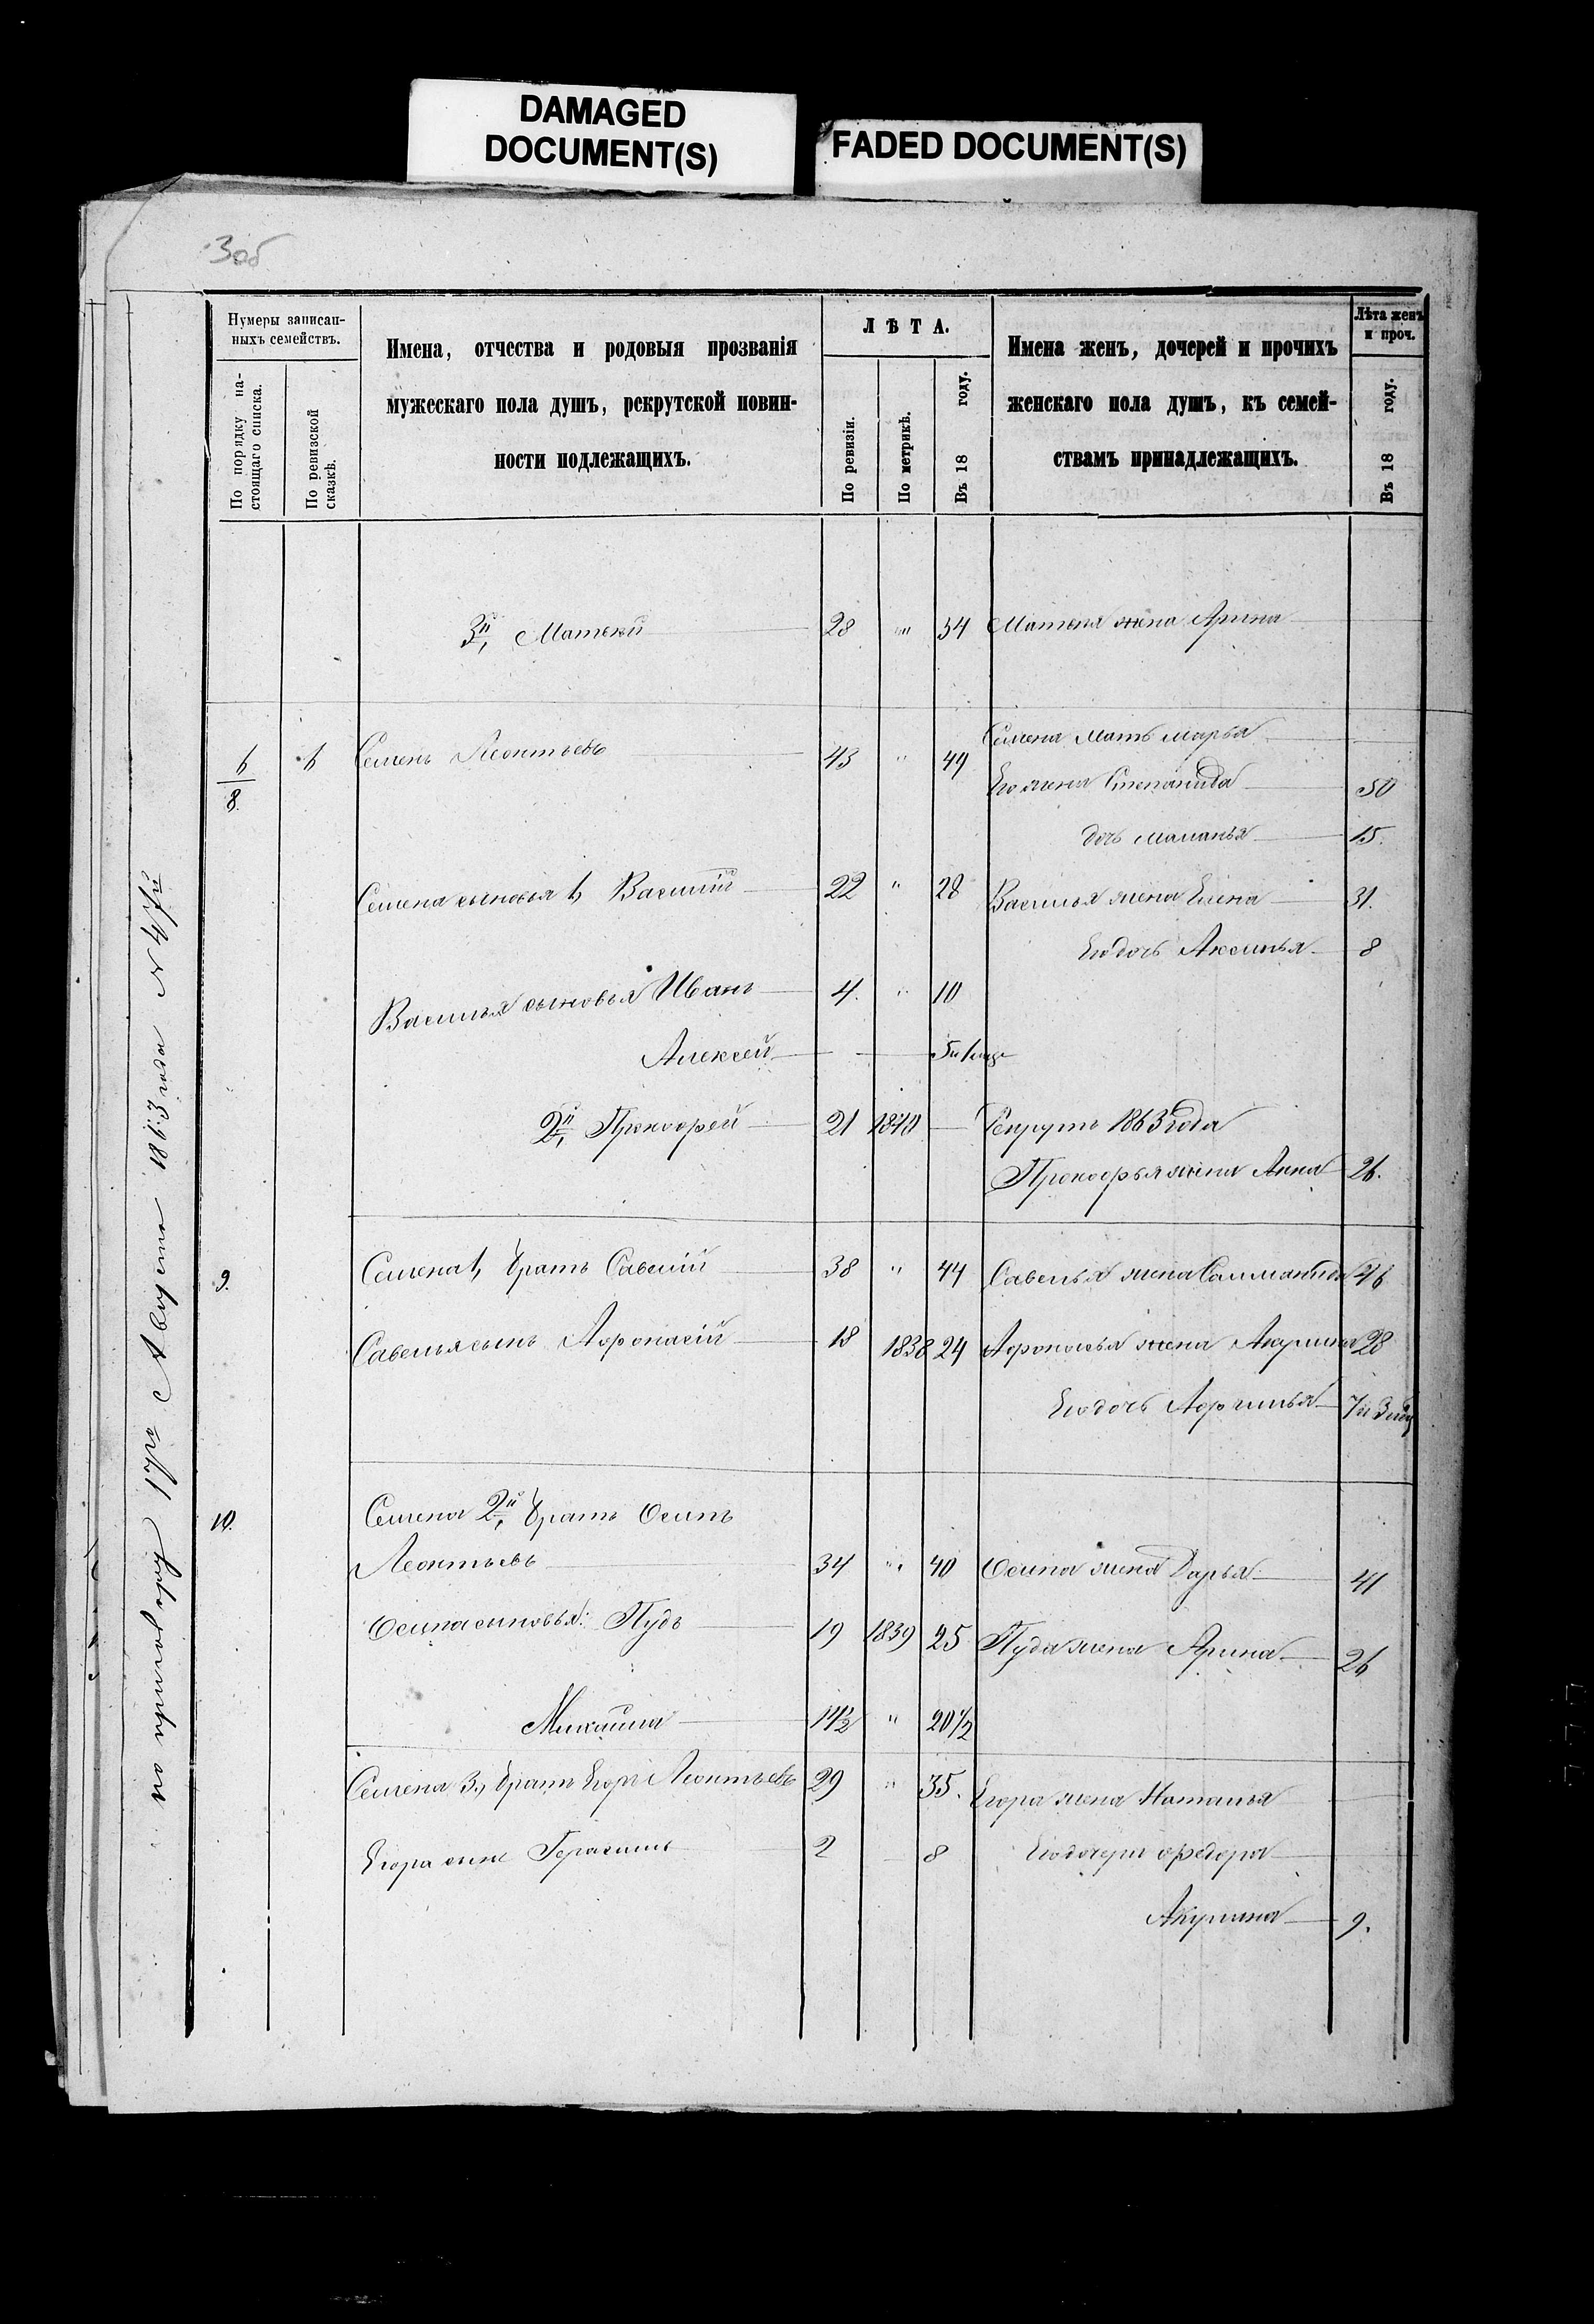 DAMAGED
DOCUMENT(S)
FADED DOCUMENT(S)
3об
Нумеры записан-
ныхъ семействъ.
По порядку на-
стоящаго списка.
По ревизской
сказкѣ.
Имена, отчества и родовыя прозванія
мужескаго пола душъ, рекрутской повин-
ности подлежащихъ.
ЛѢТА.
По ревизіи.
По метрикѣ.
Въ 18 году.
Имена женъ, дочерей и прочихъ
женскаго пола душъ, къ семей-
ствамъ принадлежащихъ.
Лѣта женъ
и проч.
Въ 18 году.
3й, Матвей 28 " 34 Матвея жена Арина
Семена мать Марья
6/8 6 Семенъ Леонтьевъ 43 " 49
Его жена Степанида 50
дочь Маланья 15.
Семена сыновья 1, Василій 22 " 28 Василья жена Елена 31.
Его дочь Аксинья 8
Василья сыновья Иванъ 4. " 10
Алексей 5
2й, Прокофей 21 1840 Рекрутъ 1863 года
Прокофья жена Анна 26.
9. Семена 1, братъ Савелій 38 " 44 Савелья жена 46
Савелья сынъ Афонасій 18 1838 24 Афонасья жена Акулина 28
Его дочь 7 и 3
10. Семена 2й, братъ Осипъ
Леонтьевъ 34 " 40 Осипа жена Дарья 41
Осипа сыновья: Пудъ 19 1839 25 Пуда жена Арина 26
Михаила 14½ " 20½
Семена 3, братъ Егоръ Леонтьевъ 29 " 35. Егора жена Наталья
Егора сынъ Герасимъ 2 8 Его дочери Федора
Акулина 9.
по приговору 17го Августа 1863 года № 47й